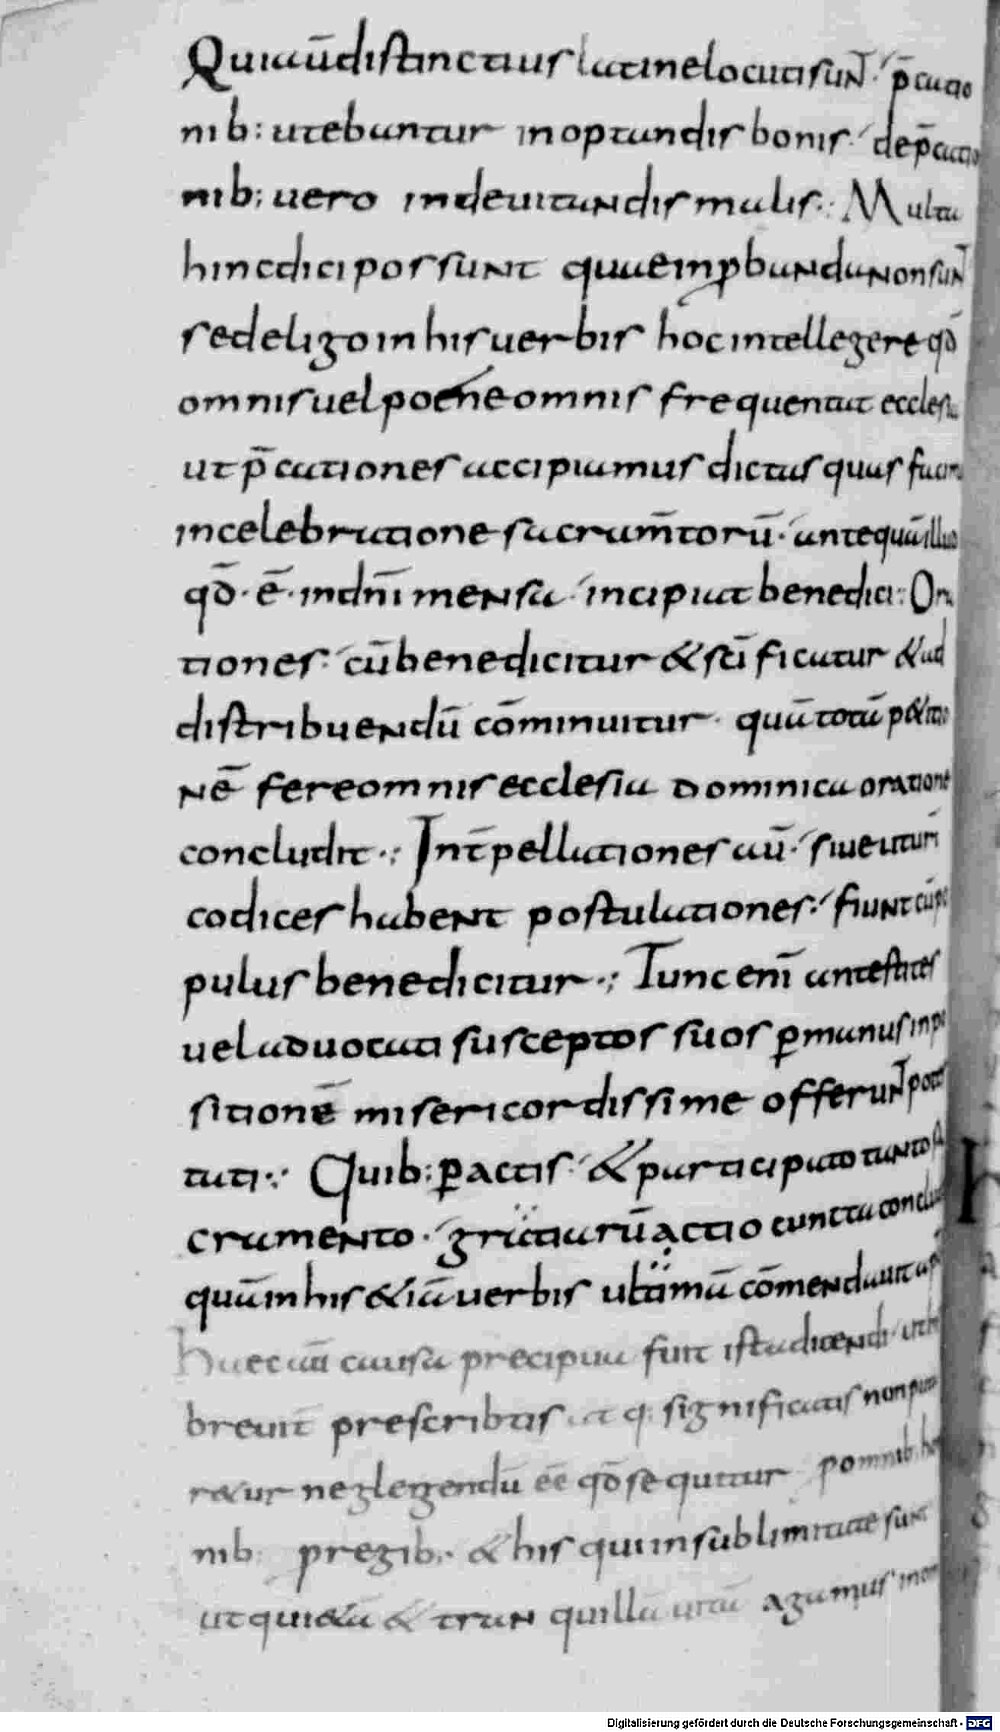 Qui aū distinctius latine locuti suNT. p̄catio
nib: utebantur in optandis bonis. dep̄catio
nib: uero indeuitaNdis malis:. Multa
hinc dici possuNt quae inp̱buNdaNonsuNT
sed eligo in his uerbis hoc intellegere qđ
omnis uel poene omnis frequentat ecclesia
ut p̄cationes accipiamus dictas quas facim
in celebratione sacram̄torū. antequā illud
qđ. ē. in dn̄i meNsa incipiat benedici:. Ora
tiones: cū benedicitur & sc̄ificatur & ad
distribueNdū cōminuitur. quā totā p&itio
Nē fere omnis ecclesia dominica oratione
concludit.; Int̄pellationes aū. siue ut ur̄i
codices habeNt postulationes: fiuNt cū po
pulus benedicitur.; Tunc eni antestites
uel aduocati susceptos suos p̱ manus inpo
sitionē misericordissime offeruNT potes
tati:; Quib: p̱actis. & participato taNto sa
crameNto. gratiarū actio cuncta concludit
quā in his &iā uerbis ultimā cōmeNdauit ap
haec aūt causa precipua fuit ista diceNdi ut his
breuit̄ prescribtis at q: significatis non puta
r&ur neglegendū ēē qđ sequitur p omnib: homi
nib: p regib:. & his qui in sublimitate sunt
ut qui&ā & traNquillā uitā agamus in om